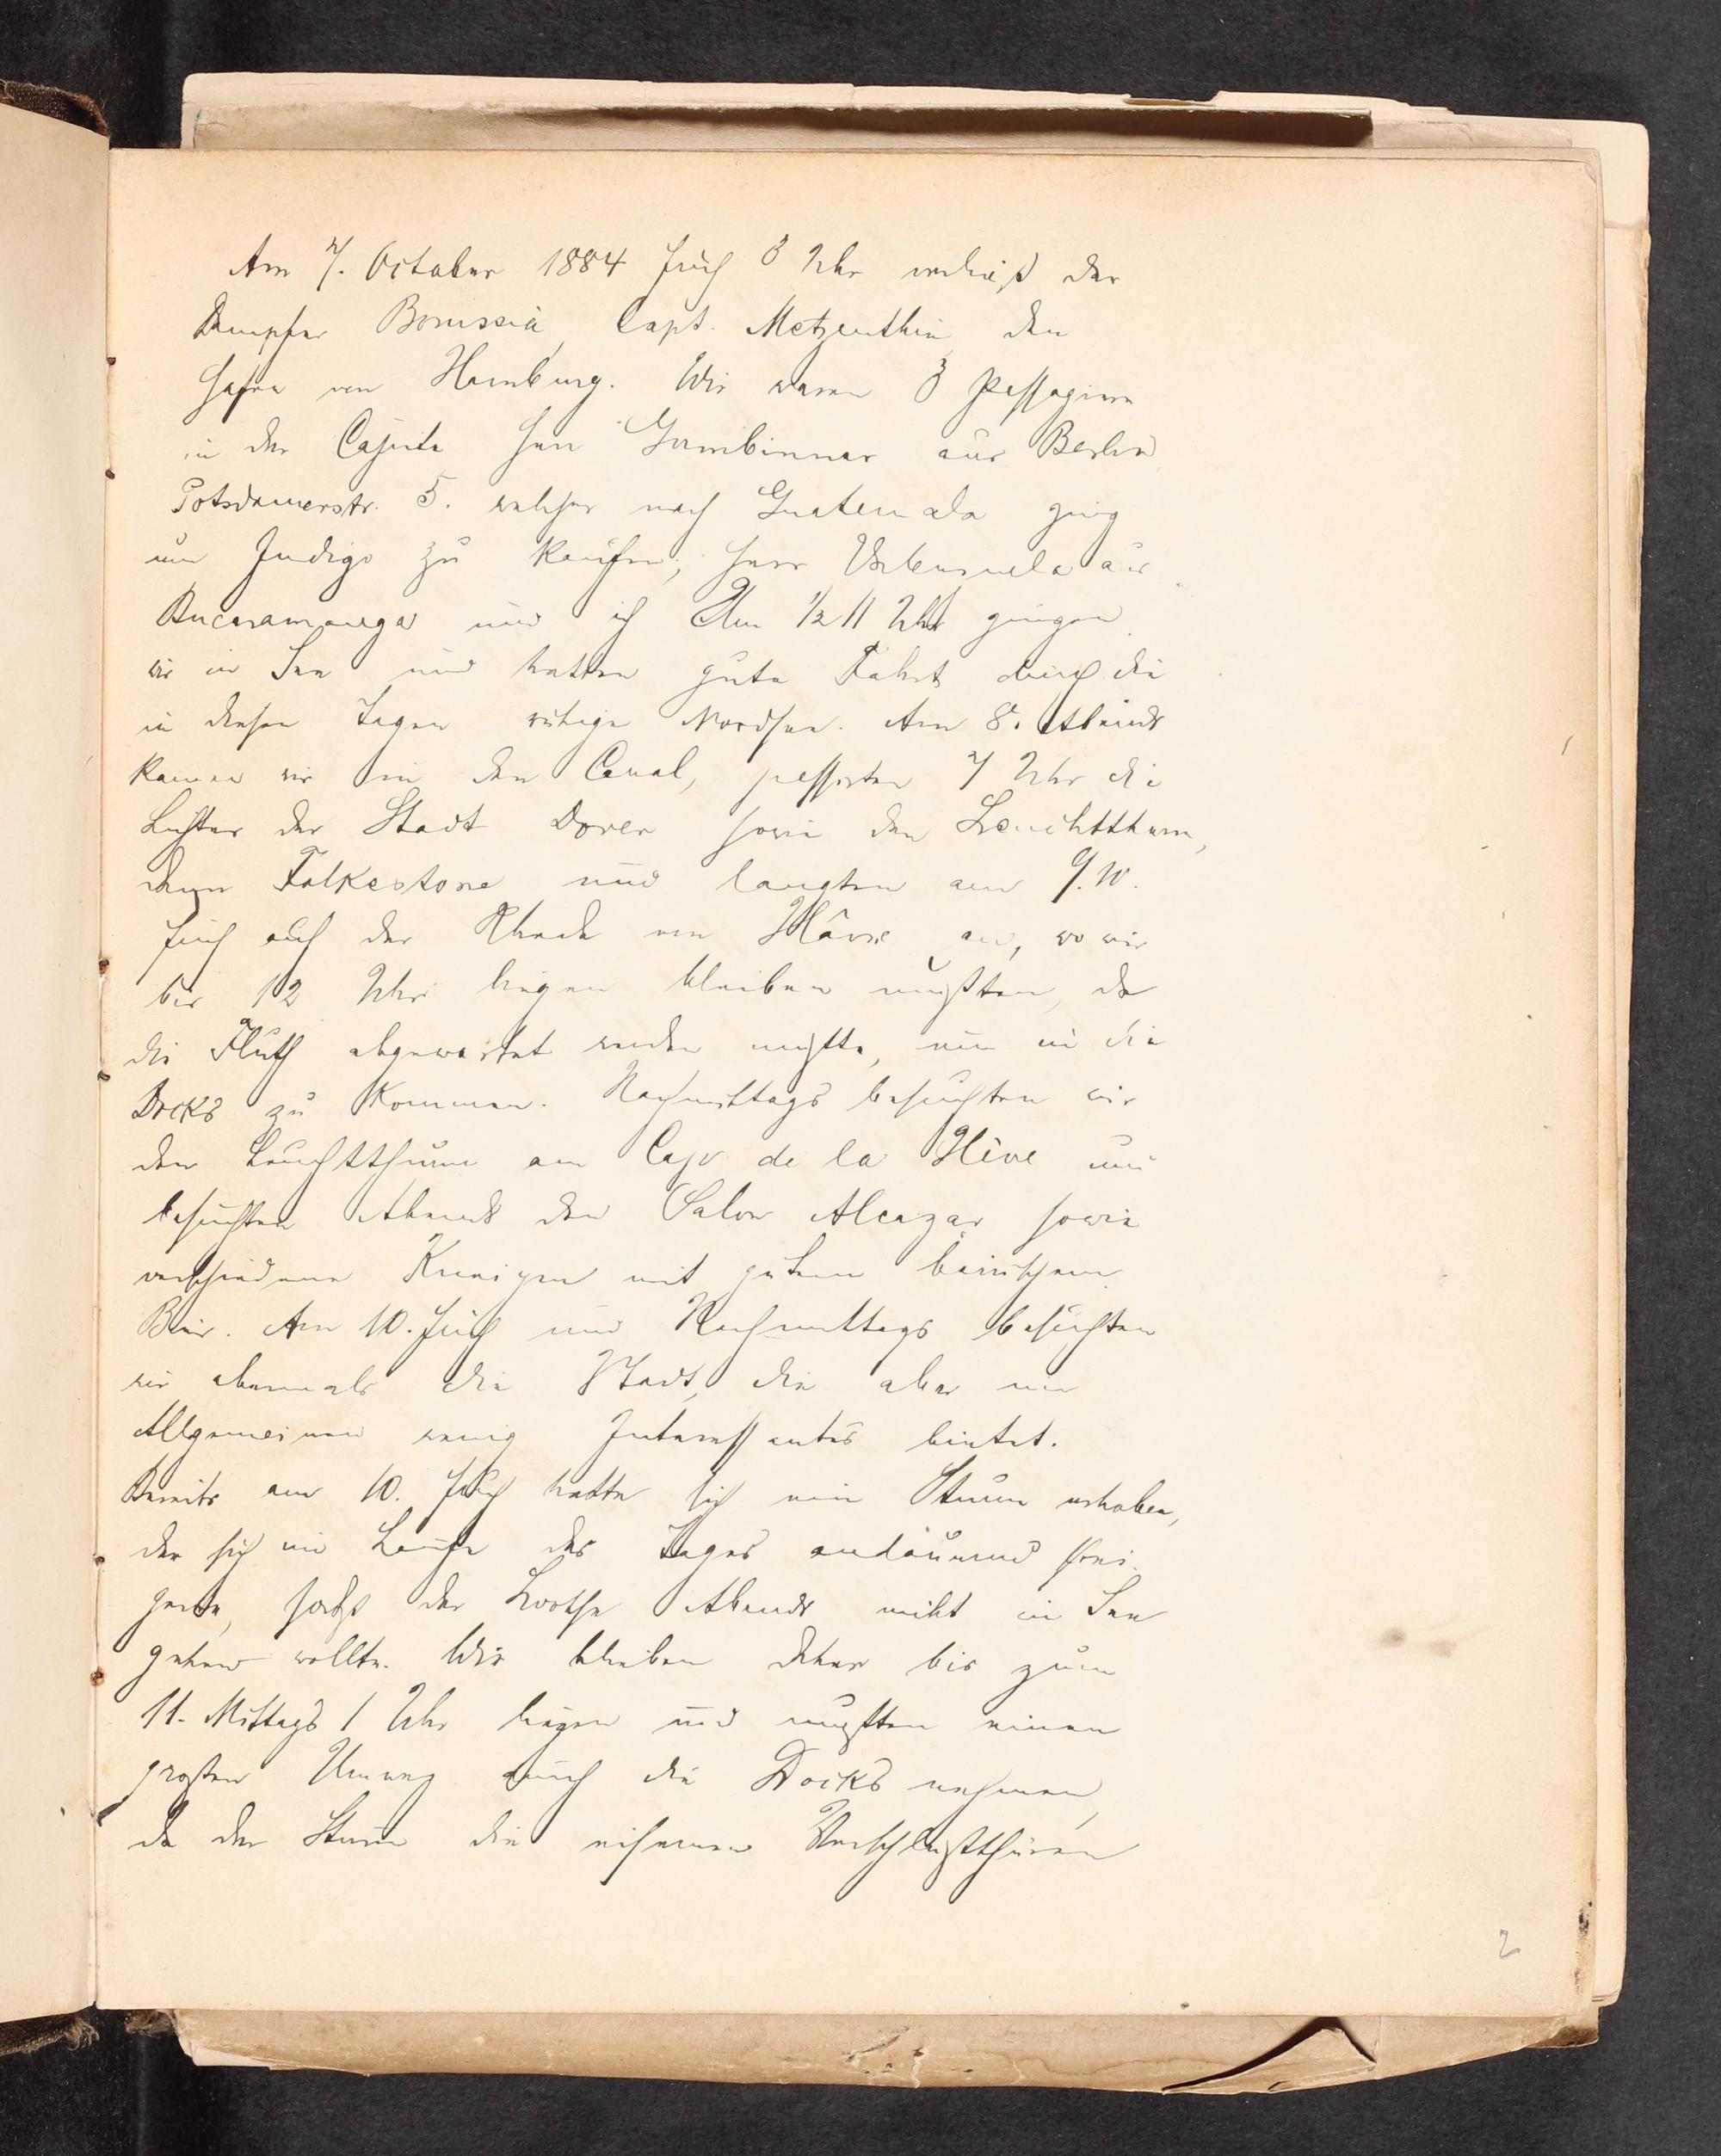 Am 7. October 1884 früh 3 Uhr verließ der
Dampfer Borussia, Capt. Metzenthin, den
Hafen von Hamburg. Wir waren 3 Passagiere
in der Cajüte Herr Gumbinner aus Berlin
Potsdamerstr. 5. welcher nach Guatemala ging
um Indigo zu kaufen, Herr Valenzuela aus
Bucaramanga und ich Um ½ 11 Uhr gingen
wir in See und hatten gute Fahrt durch die
in diesen Tagen ruhige Nordsee. Am 8. Abends
kamen wir in den Canal, passirten 7 Uhr die
Lichter der Stadt Dover sowie den Leuchtthurm,
dann Folkestone und langten am 9. 10.
früh auf der Rhede von Hâvre an, wo wir
bis 12 Uhr liegen bleiben mußten, da
die Fluth abgewartet werden mußte, um in die
Docks zu kommen. Nachmittags besuchten wir
den Leuchtthurm am Cap de la Hève und
besuchten Abends den Salon Alcazar sowie
verschiedene Kneipen mit gutem bairischem
Bier. Am 10. früh und Nachmittags besuchten
wir abermals die Stadt, die aber im
Allgemeinen wenig Interessantes bietet.
Bereits am 10. früh hatte sich ein Sturm erhoben,
der sich im Laufe des Tages andauernd stei-
gerte, sodaß der Lootse Abends nicht in See
gehen wollte. Wir blieben daher bis zum
11. Mittags 1 Uhr liegen und mußten einen
großen Umweg durch die Docks nehmen,
da der Sturm die eisernen Verschlußthüren
2